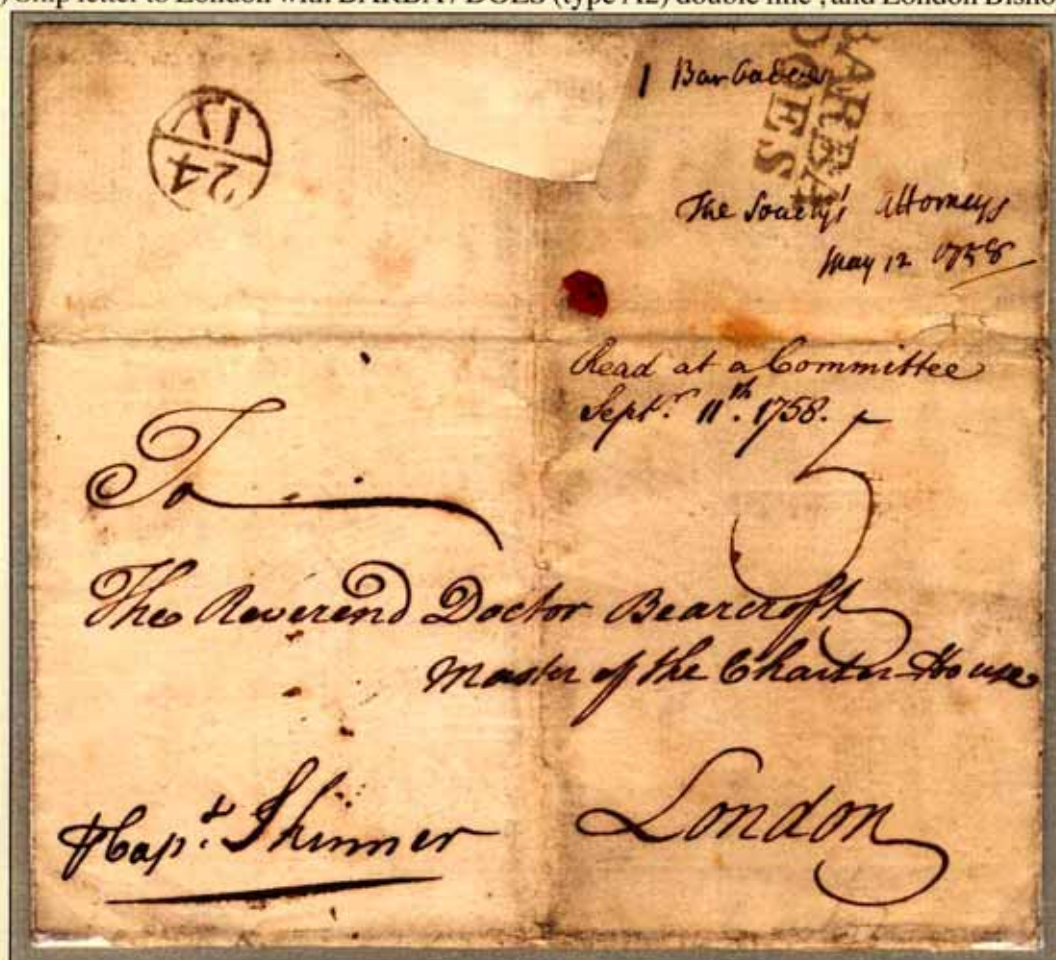 Ship letter to London with BARBA / DOES (type A2) double line , and London Bisho
BARBA
DOES
1 Barbadoes
The Society's Attorneys
May 12 1758
Read at a Committee
Sept.r 11th. 1758.
5
To
The Reverend Doctor Bearcroft
Master of the Charter House
London
Cap.t Skinner
24